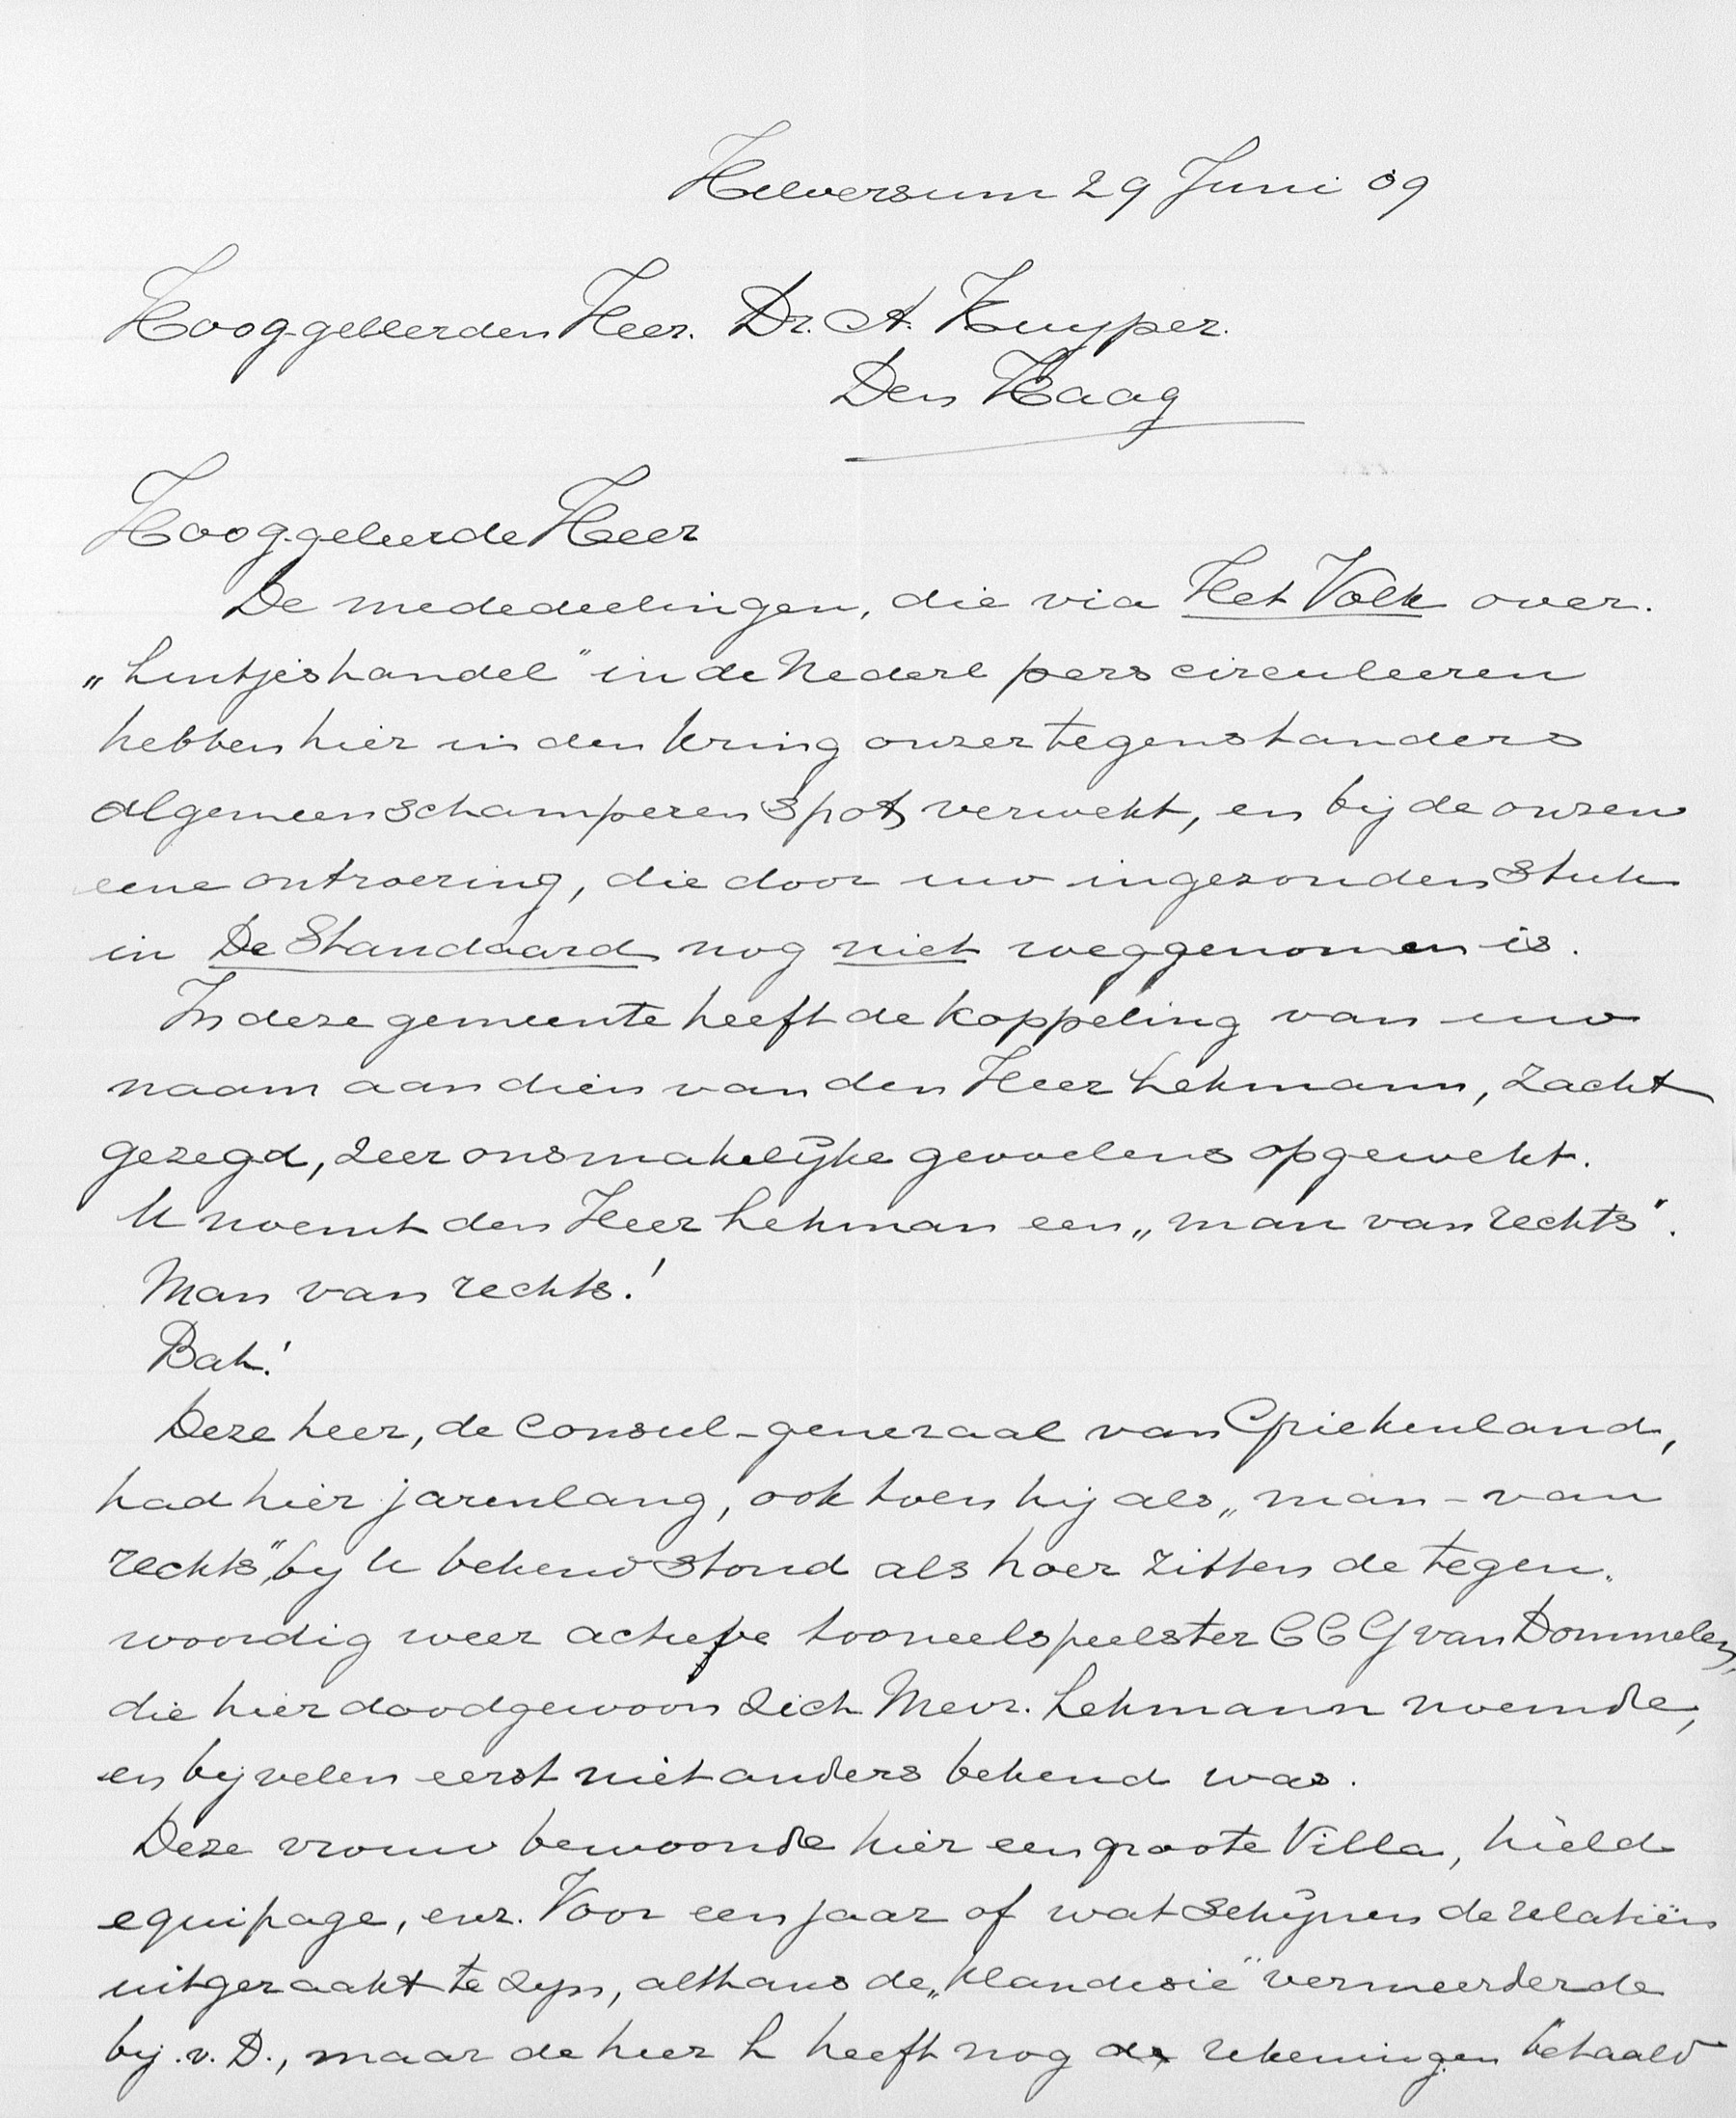 Hilversum 29 Juni 09
Hoog-geleerden Heer. Dr. A. Kuyper.
Den Haag
Hoog-geleerde Heer
De mededeelingen, die via Het Volk over.
„Lintjeshandel" in de Nederl pers circuleeren
hebben hier in den kring onzer tegenstanders
algemeen schamperen spot verwekt, en bij de onzen
eene ontroering, die door uw ingezonden stuk
in De Standaard nog niet weggenomen is.
In deze gemeente heeft de koppeling van uw
naam aan dien van den Heer Lehmann, zacht
gezegd, zeer onsmakelijke gevoelens opgewekt.
U noemt den Heer Lehman een „man van rechts".
Man van rechts!
Bah!
Deze heer, de Consul-generaal van Griekenland,
had hier jarenlang, ook toen hij als „man-van
rechts" by U bekend stond als hoer zitten de tegen.
woordig weer actieve tooneelspeelster C C G van Dommelen,
die hier doodgewoon zich Mevr. Lehmann noemde,
en by velen eerst niet anders bekend was.
Deze vrouw bewoonde hier een groote Villa, hield
equipage, enz. Voor een jaar of wat schijnen de relatiën
uitgeraakt te zyn, althans de „klandisie" vermeerderde
by v. D., maar de heer L heeft nog de rekeningen betaald